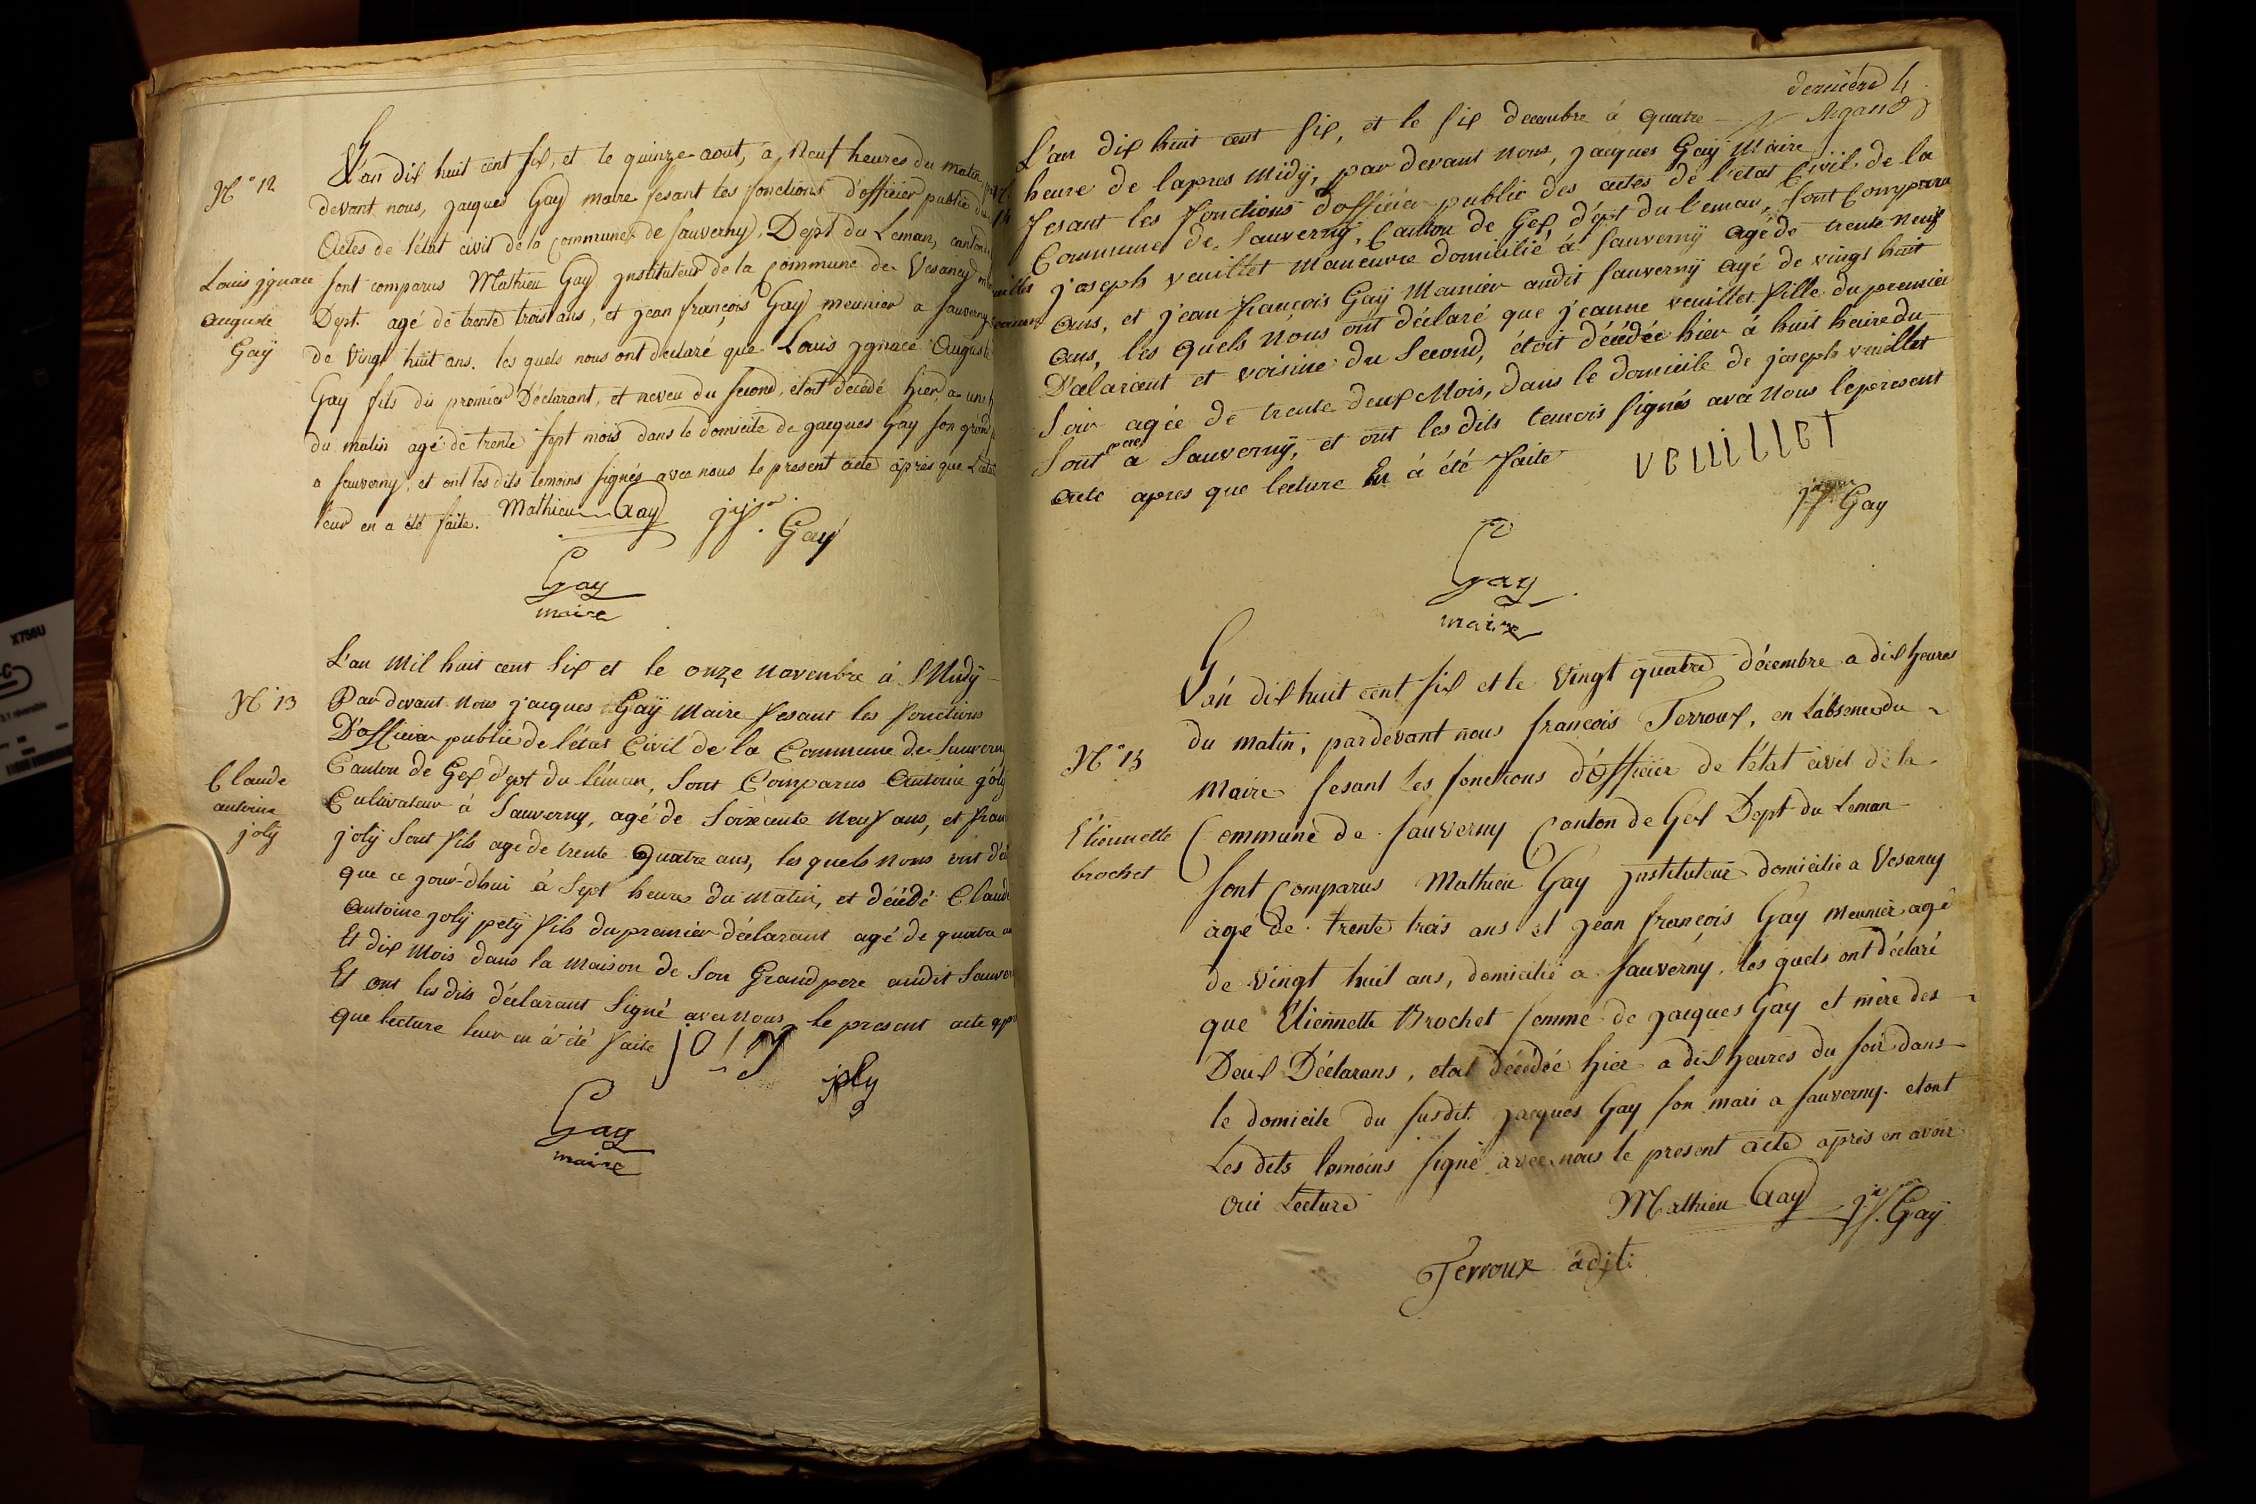 N° 12
L'an dix huit cent six, et le quinze aout, a Neuf heures du matin, par
devant nous, jacques Gay maire fesant les fonctions d'officier public des
Actes de l'état civil de la Commune de Sauverny, Dept du Leman, canton
Louis jgnace
Auguste
Gaÿ
sont comparus Mathieu Gay jnstituteur de la Commune de Vesancy
Dept. agé de trente trois ans, et jean françois Gay meunier a Sauverny
de Vingt huit ans. les quels nous ont declaré que Louis jgnace Auguste
Gay fils du premier Déclarant, et neveu du second, étoit decédé hier, a une
du matin agé de trente sept mois dans le domicile de jacques Gay son grand
a Sauverny, et ont les dits temoins signés avec nous le present acte après que
leur en a été faite. Mathieu Gay jjf. Gaÿ
Gay
maire
N° 13
L'an Mil huit cent Six et le onze Novembre à Midÿ
Par devant Nous jacques Gaÿ Maire fesant les fonctions
D'officier public de l'état Civil de la Commune de Sauverny
Claude
antoine
jolÿ
Canton de Gex d'ept du leman, Sont Comparus Antoine jolÿ
Cultivateur à Sauverny, agé de Soixante Neuf ans, et
jolÿ Sont fils agé de trente Quatre ans, les quels Nous ont
que ce jour-d'hui à Sept heures du Matin, et décédé Claude
Antoine jolÿ petÿ fils du premier déclarant agé de quatre
Et dix Mois dans la Maison de Son Grand pere audit
Et ont les dits déclarant Signé avec Nous le present acte
que lecture leur en à été faite joly
joly
Gay
maire
dernière 4
L'an dix huit cent Six, et le Six decembre à quatre
heure de l'apres Midÿ, par devant Nous, jacques Gaÿ Maire
14
fesant les fonctions d'officier public des actes de l'état Civil de la
Commune de Sauverny, Canton de Gex, d'ept du leman, Sont Compara
joseph veuillet Maneuvre domicilié à Sauvernÿ agé de trente Neuf
Ans, et jean françois Gaÿ Mannier audit Sauvernÿ agé de vingt huit
ans, les Quels Nous ont déclaré que jeanne veuillet fille du premier
D'élarant et voisine du Second, étoit décédée hier à huit heure du
Soir agée de trente deux Mois, dans le domicile de joseph veuillet
Sont pere a Sauvernÿ, et ont les dits temoins Signés avec Nous le present
acte apres que lecture En à été faite
VEUILLET
jjf. Gay
Gay
maire
L'an dix huit cent six et le Vingt quatre décembre a dix heures
N° 15
du matin, pardevant nous françois Terroux, en l'absence du
Maire fesant Les fonctions d'officier de l'état civil de la
Etiennette
brochet
Commune de Sauverny Canton de Gex Dept du Leman
sont comparus Mathieu Gay jnstituteur domicilie a Vesancy
agé de trente trois ans et jean françois Gay meunier agé
de Vingt huit ans, domicilié a Sauverny, les quels ont déclaré
que Etiennette Brochet femme de jacques Gay et mère des
Deux Déclarans, étoit décédée hier a dix heures du soir dans
le domicile du susdit jacques Gay son mari a Sauverny. et ont
Les dits temoins signé avec nous le present acte après en avoir
Oui Lecture Mathieu Gay jjf. Gaÿ
Terroux adjt.